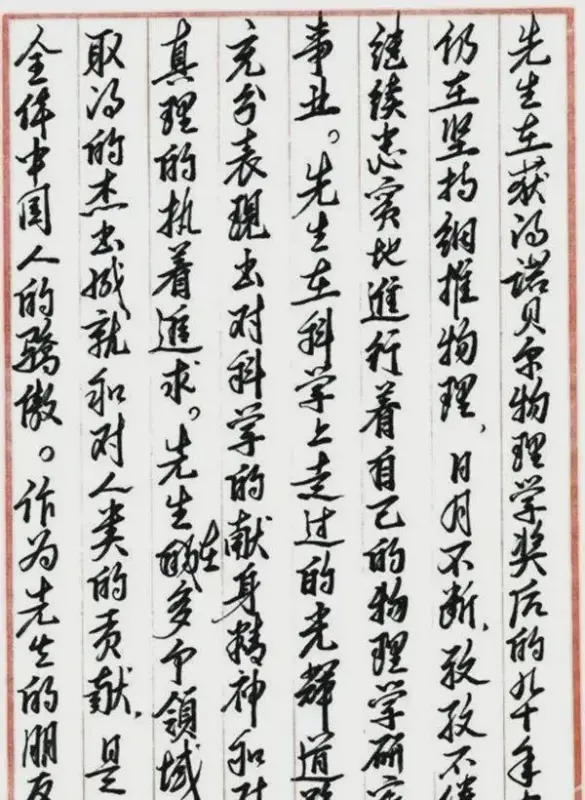 先生在获得諾贝尔物理学奖后的几十年
仍在坚持細推物理，日月不断，孜孜不倦
继续忠实地進行着自己的物理学研究
事业。先生在科学上走过的光辉道路
充分表现出对科学的献身精神和对
真理的执着追求。先生在多个領域
取得的杰出成就和对人类的贡献，是
全体中国人的骄傲。作为先生的朋友